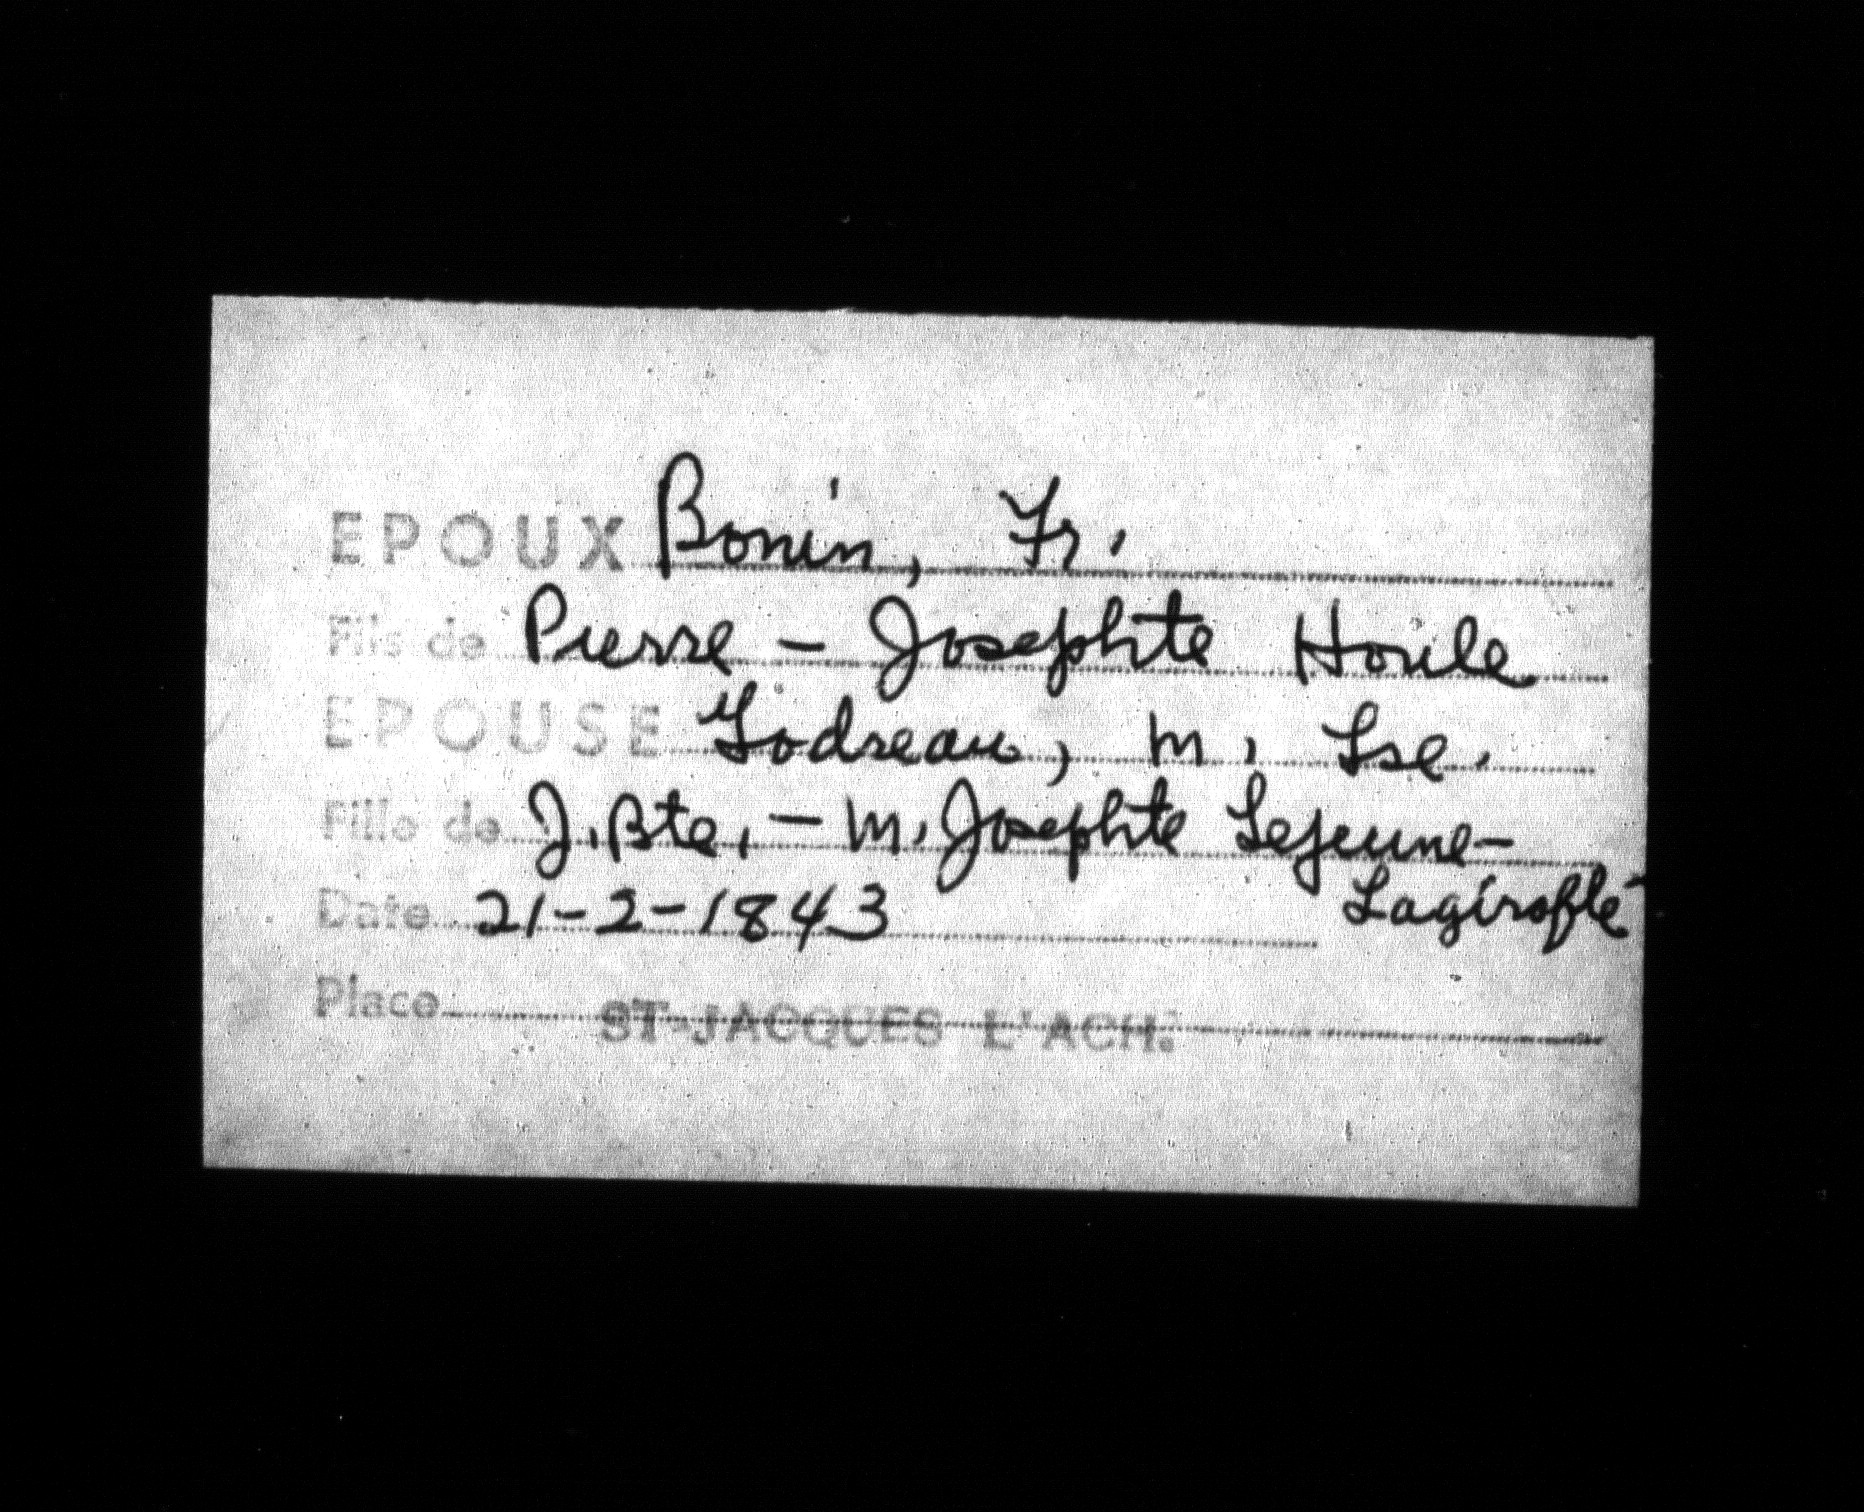 EPOUX Bonin, Fr.
Fils de Pierre - Josephte Houle
EPOUSE Godreau, M. Lse.
Fille de J. Bte. - M. Josephte Lejeune-
Lagirofle
Date 21-2-1843
Place ST-JACQUES L'ACH.